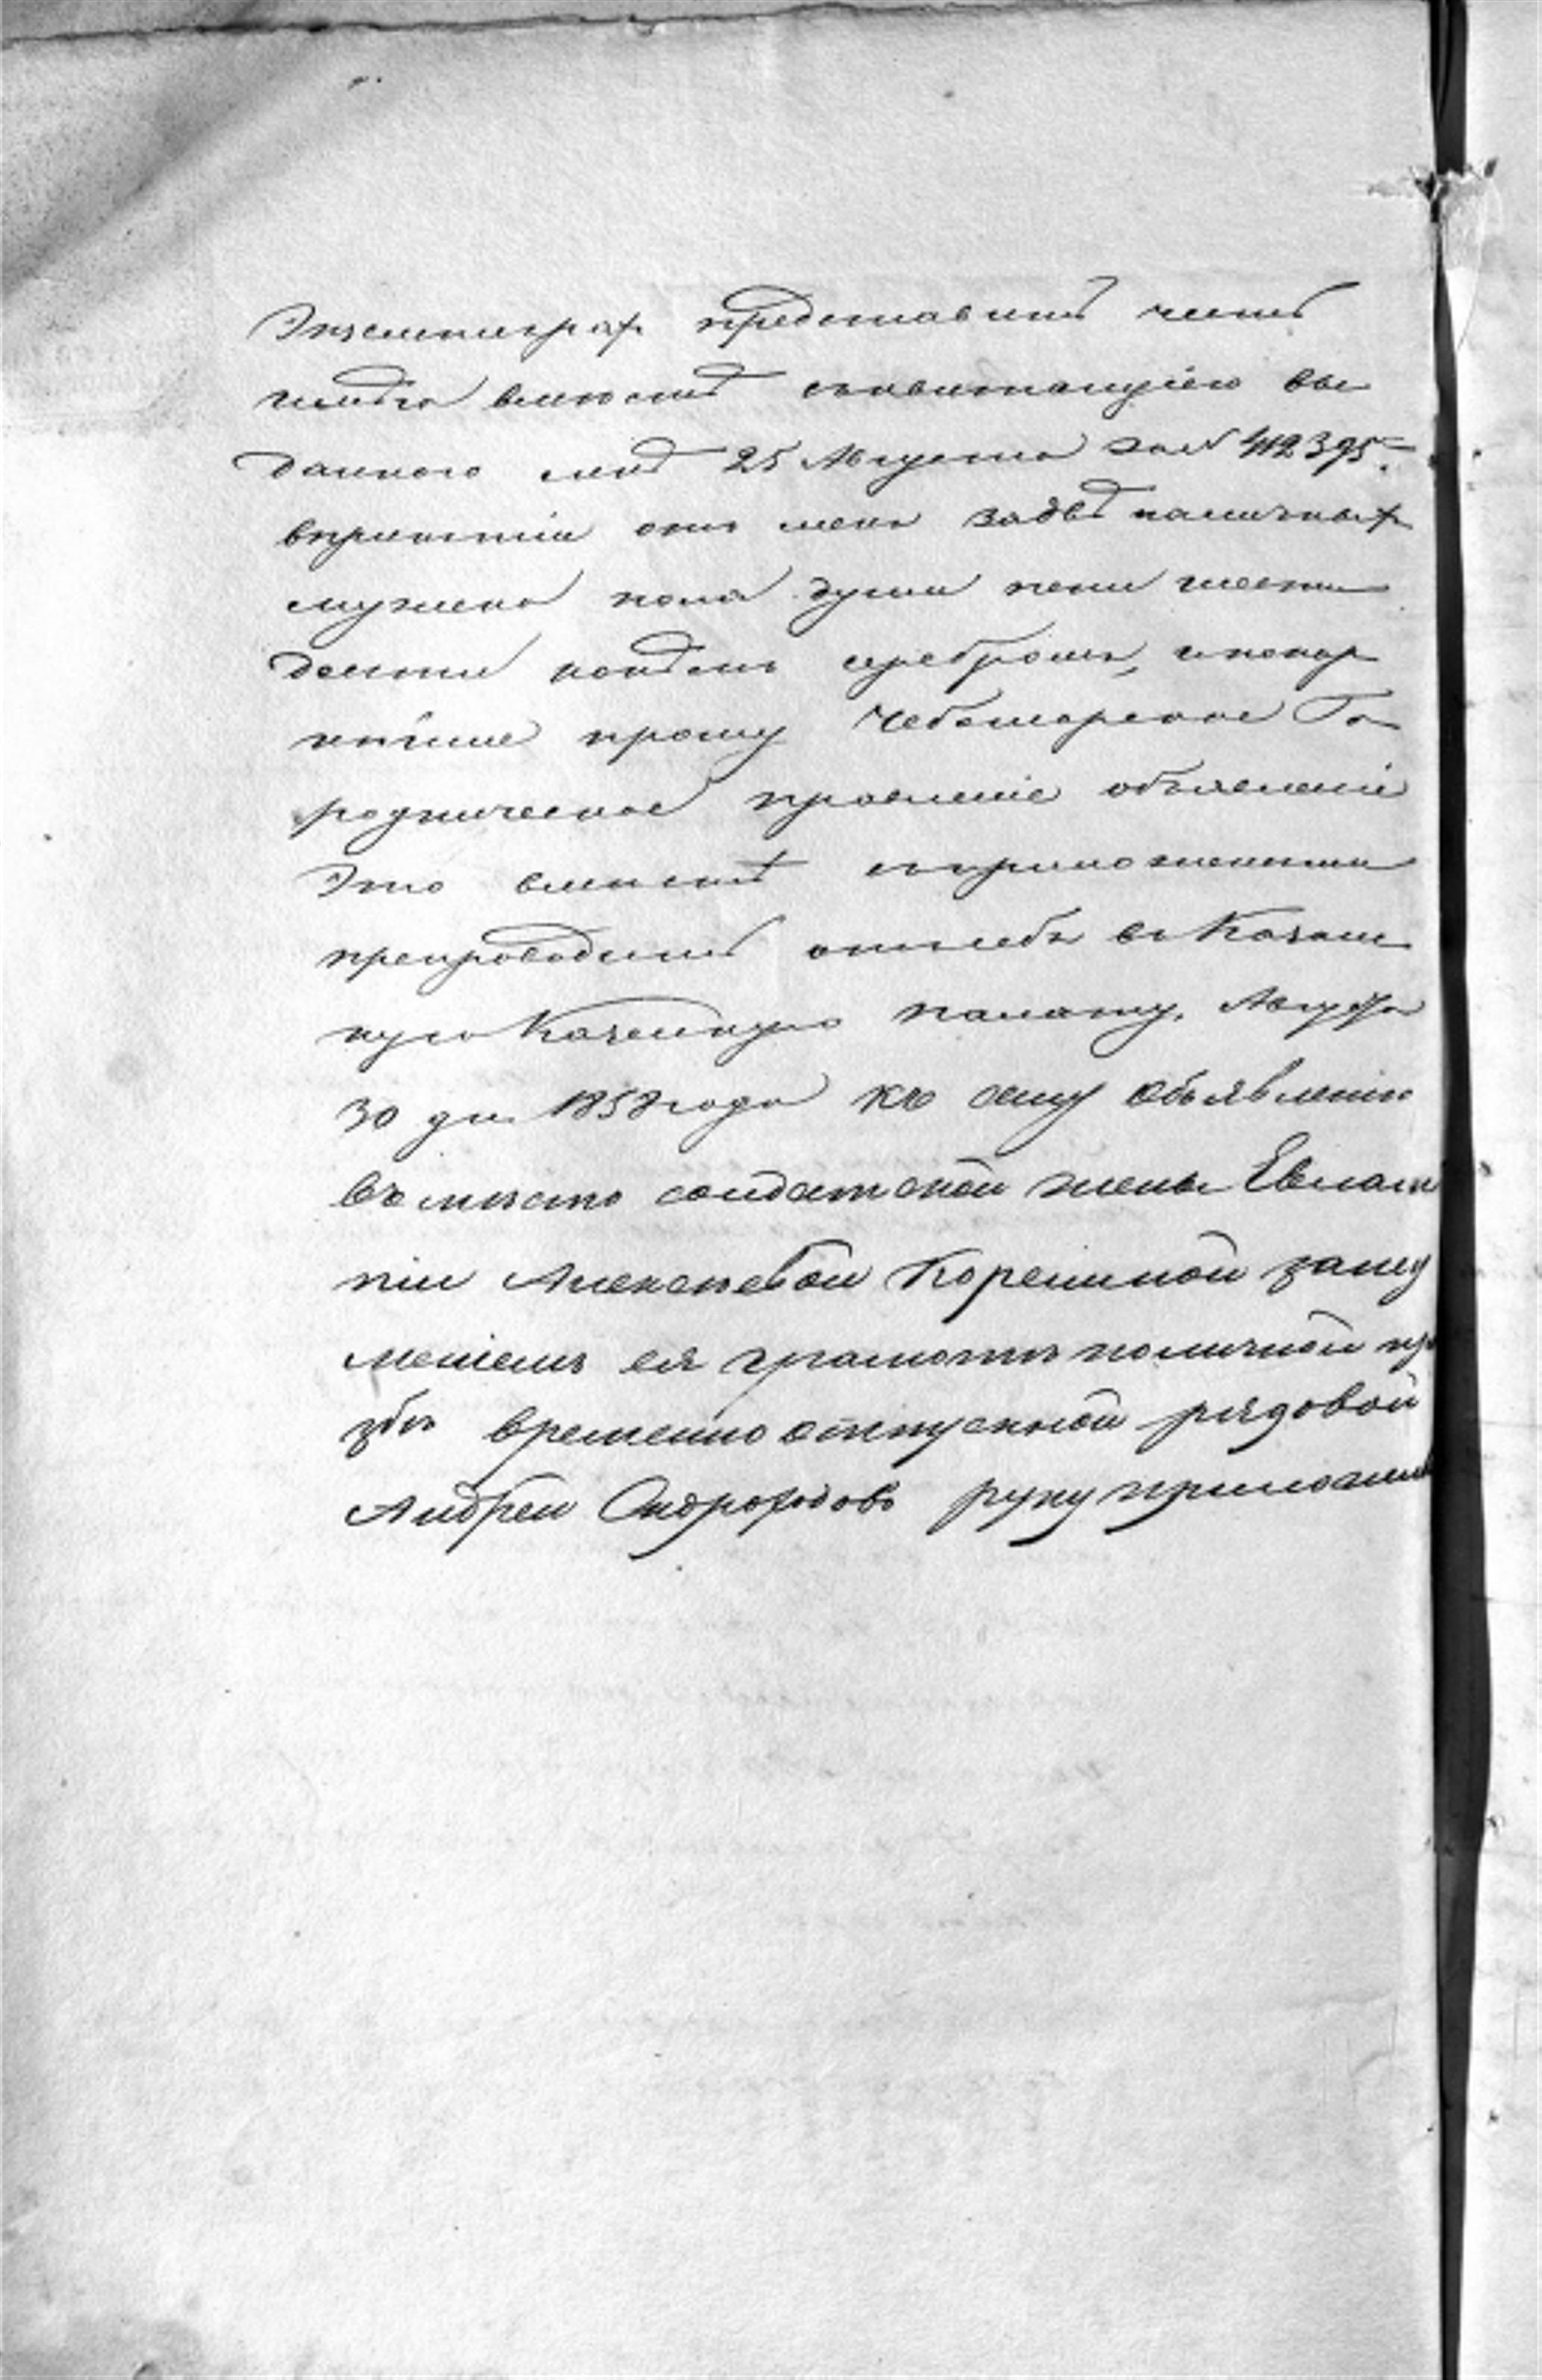 Экземплярах представить честь
имѣю вмѣстѣ сквитанціею вы
данною мнѣ 25 Августа за № 412395
впринятіи отъ меня задвѣ наличныхъ
мужеска пола души пени шести
десяти копѣекъ серебромъ, ипокор
нѣйше прошу Чебоксарское Го
родническое правленіе объявленіе
Это вмѣстѣ сприложеніями
препроводить отсебя въ Казан
скую Казенную палату. Августа
30 дня 1858 года къ сему объявленію
въмѣсто солдатской жены Евлам
піи Алексѣевой Корешиной занеу
меніемъ ея грамотѣ поличной про
збѣ временно отпускной рядовой
Андрей руку приложилъ